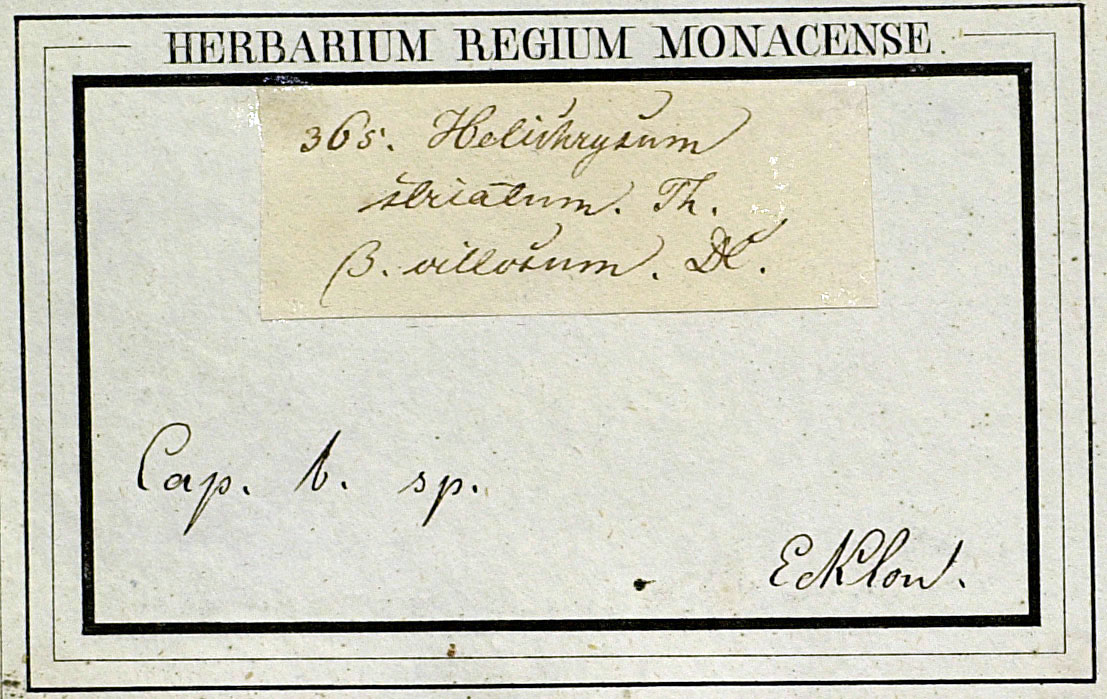 HERBARIUM REGIUM MONACENSE.
365. Helichrysum
striatum. Th.
β. villosum. DC.
Cap. b. sp.
Ecklon.